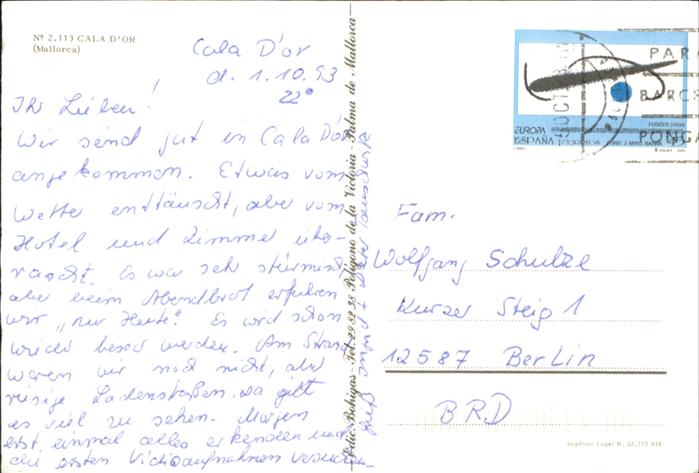 Nº 2.113 CALA D'OR
(Mallorca)
Cala D'or
d. 1.10.93
22°
Ihr Lieben!
Wir sind gut in Cala D'or
angekommen. Etwas vom
Wetter enttäuscht, aber vom
Hotel und Zimmer über-
rascht. Es war sehr stürmisch
aber beim Abendbrot erfuhren
wir „nur Heute“. Es wird schon
wieder besser werden. Am Strand
waren wir noch nicht, aber
riesige Ladenstraßen. Da gibt
es viel zu sehen. Morgen
erst einmal alles erkunden und
die ersten Videoaufnahmen versuchen.
Gruß
Edic. Bohigas - Tel. 29 82 38 Polígono de la Victoria - Palma de Mallorca -
EUROPA
ESPAÑA
CORREOS
FUND. J. MIRÓ. BARNA.
45
OCT
PAR
BARCE
PONGA
Fam.
Wolfgang Schulze
Kurzer Steig 1
12587 Berlin
BRD
Depósito Legal B. 22.712 XIX